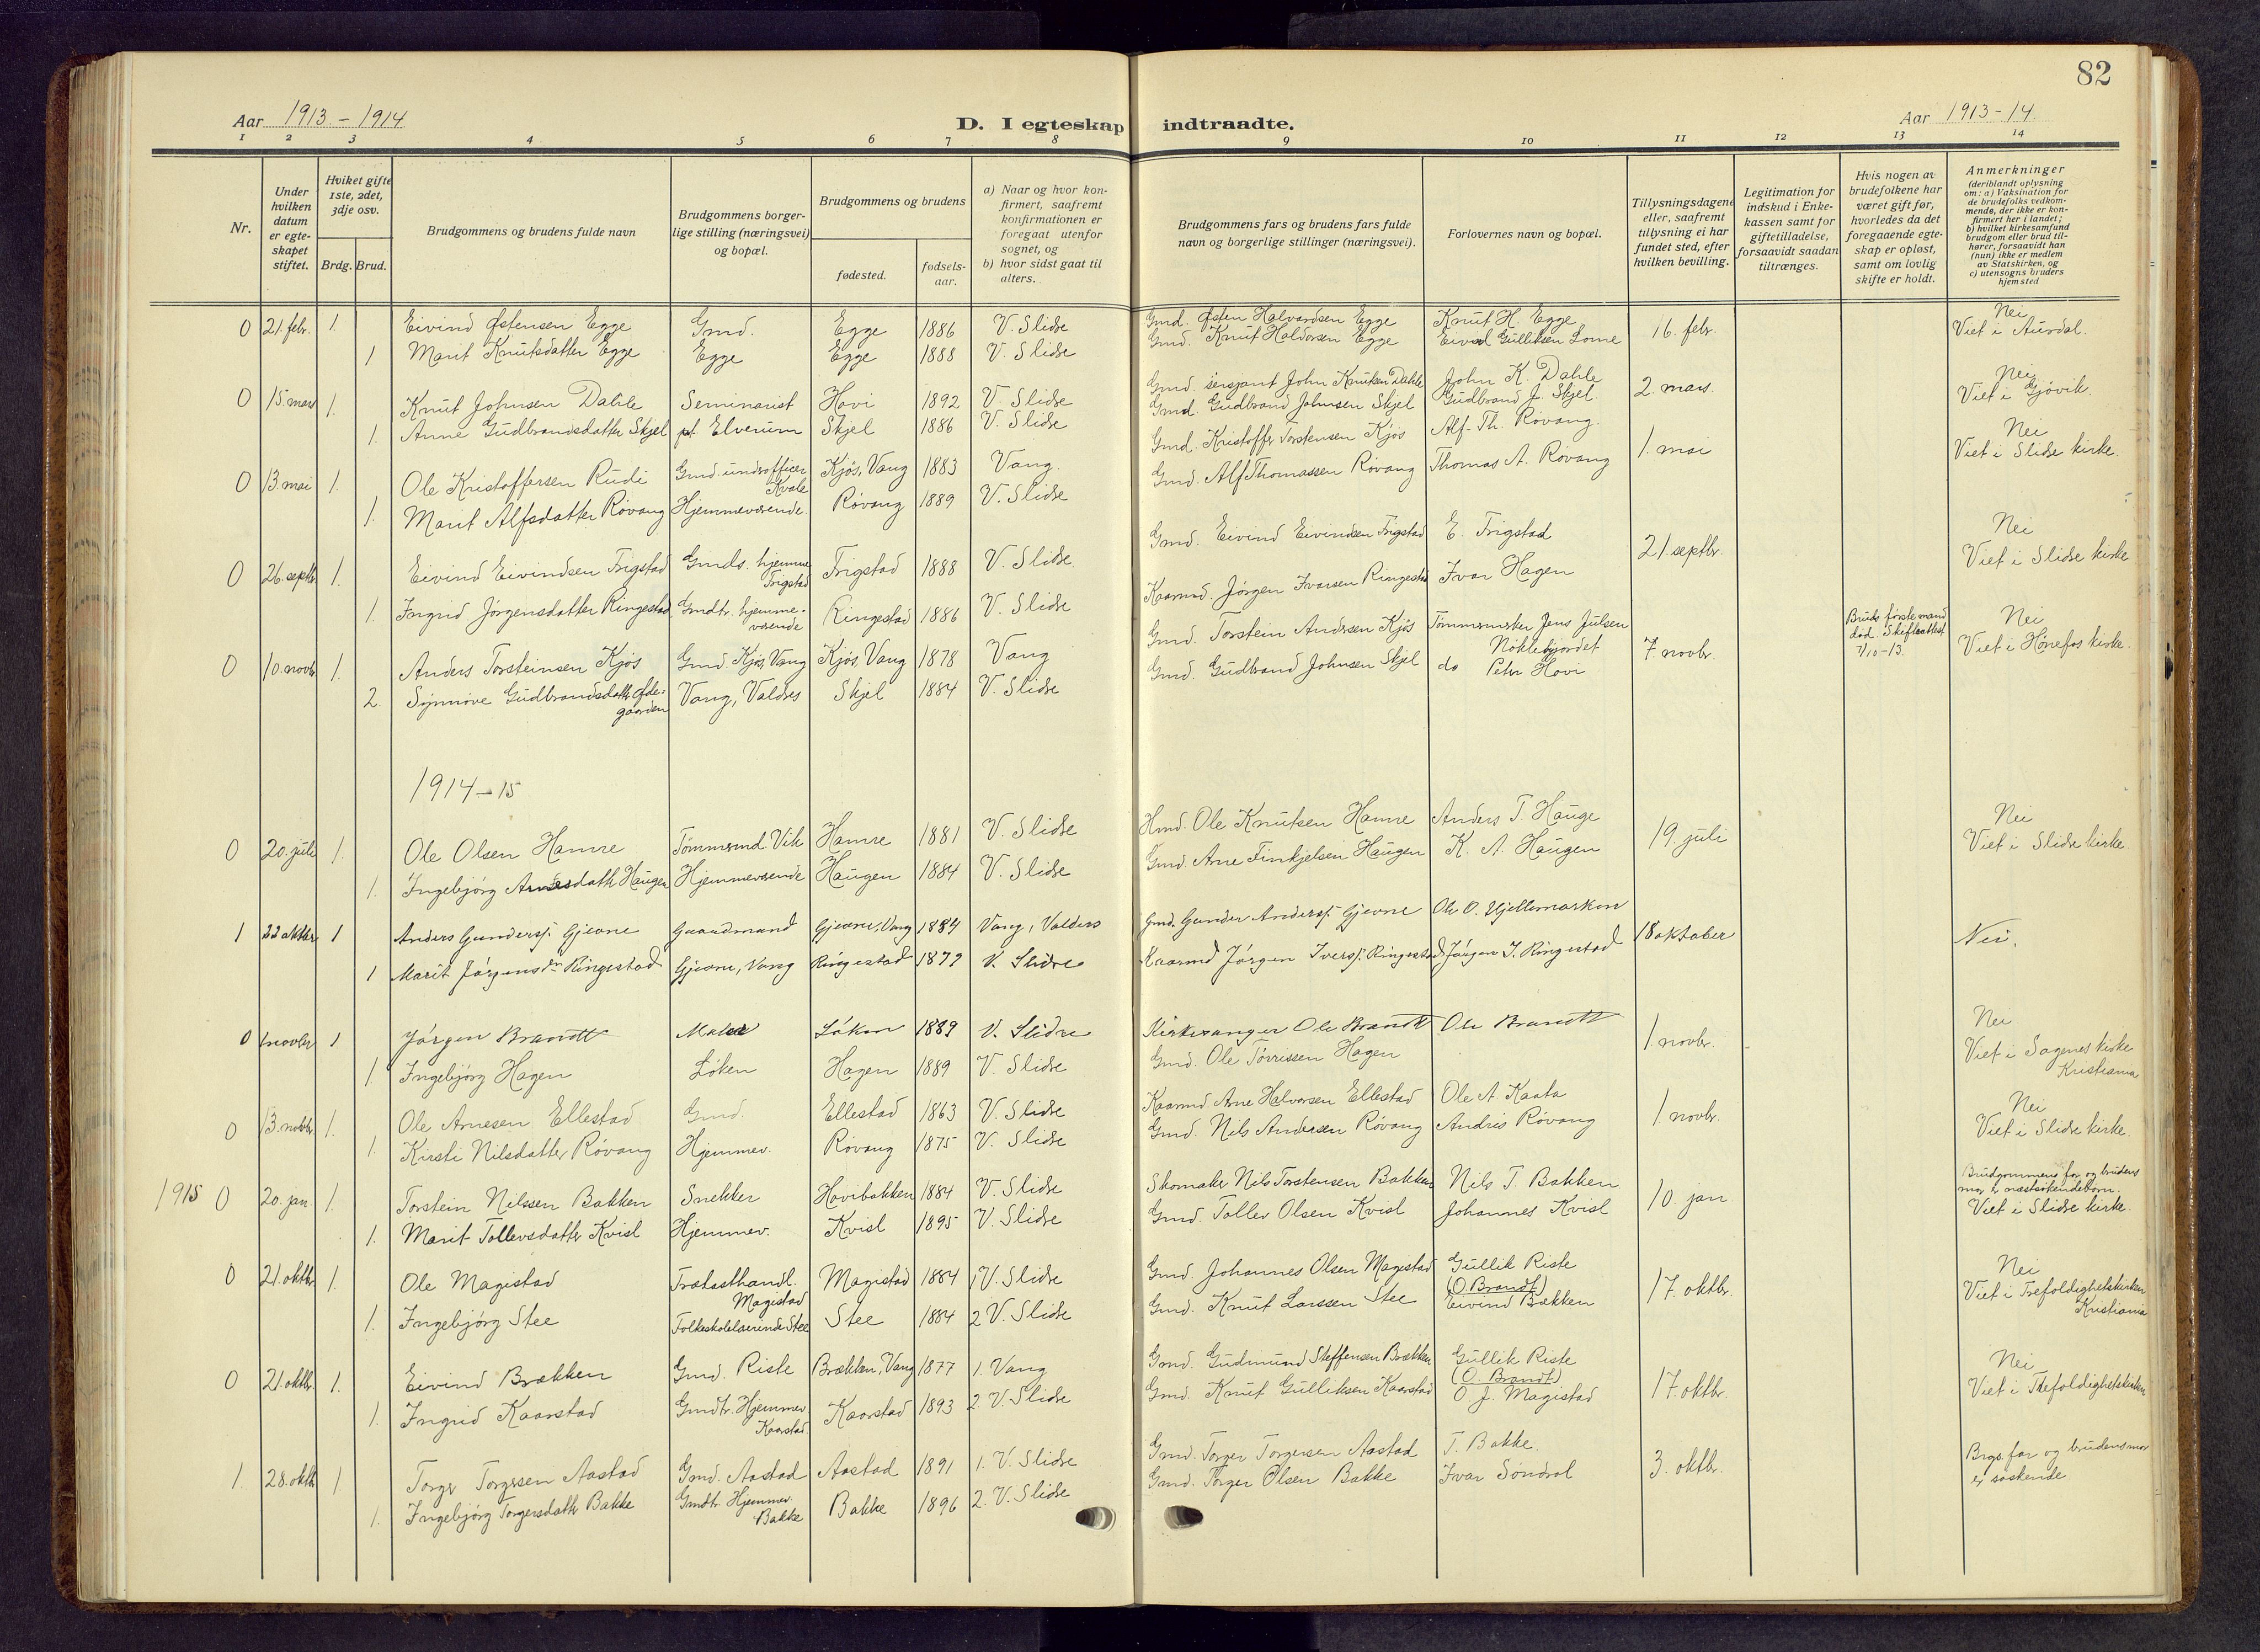 82
Aar 1913 - 1914
D. I egteskap indtraadte.
Aar 1913-14.
1 2 3 4 5 6 7 8 9 10 11 12 13 14
Nr.
Under hvilken datum er egteskapet stiftet.
Hviket gifte 1ste, 2det, 3dje osv.
Brdg. Brud.
Brudgommens og brudens fulde navn
Brudgommens borgerlige stilling (næringsvei) og bopæl.
Brudgommens og brudens
fødested.
fødselsaar.
a) Naar og hvor konfirmert, saafremt konfirmationen er foregaat utenfor sognet, og
b) hvor sidst gaat til alters.
Brudgommens fars og brudens fars fulde navn og borgerlige stillinger (næringsvei).
Forlovernes navn og bopæl.
Tillysningsdagene eller, saafremt tillysning ei har fundet sted, efter hvilken bevilling.
Legitimation for indskud i Enkekassen samt for giftetilladelse, forsaavidt saadan tiltrænges.
Hvis nogen av brudefolkene har været gift før, hvorledes da det foregaaende egteskap er opløst, samt om lovlig skifte er holdt.
Anmerkninger
(deriblandt oplysning om: a) Vaksination for de brudefolks vedkommende, der ikke er konfirmert her i landet; b) hvilket kirkesamfund brudgom eller brud tilhører, forsaavidt han (hun) ikke er medlem av Statskirken, og c) utensogns bruders hjemsted
0 21. febr. 1. Eivind Østensen Egge Gmd. Egge 1886 V. Slidre Gmd. Østen Halvordsen Egge Knut H. Egge 16. febr. Nei
1 Marit Knutsdatter Egge Egge Egge 1888 V. Slidre Gmd. Knut Haldorsen Egge Eivind Gulliksen Lome Viet i Aurdal.
0 15. mars 1. Knut Johnsen Dahle Seminarist Hovi 1892 V. Slidre Gmd. sersjant John Knutsen Dahle John K. Dahle 2. mars. Nei
1. Anne Gudbrandsdatter Skjel pt. Elverum Skjel 1886 V. Slidre Gmd. Gudbrand Johnsen Skjel Gudbrand J. Skjel. Viet i Gjøvik.
0 13. mai 1. Ole Kristoffersen Rudi Gmd. underofficer Kvale Kjøs, Vang 1883 Vang. Gmd. Kristoffer Torstensen Kjøs Alf Th. Røvang. 1. mai Nei
1. Marit Alfsdatter Røvang Hjemmeværende Røvang 1889 V. Slidre Gmd. Alf Thomassen Røvang Thomas A. Røvang Viet i Slidre kirke.
0 26. septbr. 1. Eivind Eivindsen Trigstad Gmds. hjemme Trigstad Trigstad 1888 V. Slidre. Gmd. Eivind Eivindsen Trigstad E. Trigstad 21. septbr. Nei
1. Ingrid Jørgensdatter Ringestad Gmdtr. hjemmeværende Ringestad 1886 V. Slidre Kaarmd. Jørgen Ivarsen Ringestad Ivar Hagen Viet i Slidre kirke
0 10. novbr. 1. Anders Torsteinsen Kjøs Gmd. Kjøs, Vang Kjøs, Vang 1878 Vang Gmd. Torstein Andersen Kjøs Tømmermester Jens Julsen Nøklebyordet 7. novbr. Bruds første mand død. Skifteattest 7/10-13. Nei
2. Synnøve Gudbrandsdatter Øde-gaarden Vang, Valdres Skjel 1884 V. Slidre Gmd. Gudbrand Johnsen Skjel do Peter Hovi Viet i Hønefos kirke.
1914-15
0 20. juli 1. Ole Olsen Hamre Tømmermd. Vik Hamre 1881 V. Slidre Hmd. Ole Knutsen Hamre Anders T. Hauge 19. juli Nei
1. Ingebjørg Arnesdatter Haugen Hjemmeværende Haugen 1884 V. Slidre Gmd. Arne Finkjelsen Haugen K. A. Haugen Viet i Slidre kirke.
1 22 oktbr 1 Anders Gundersj. Gjevne Gaardmand Gjevne, Vang 1884 Vang, Valders Gmd. Gunder Andersj. Gjevne Ole O. Hjellmarken 18 oktober Nei.
1 Marit Jørgensdr Ringestad Gjevne, Vang Ringestad 1879 V. Slidre Kaarmd Jørgen Iversj. Ringestad Jørgen I. Ringestad
0 1 novbr 1 Jørgen Brandtt Maler Løken 1889 V. Slidre Kirkesanger Ole Brandtt Ole Brandtt 1. novbr. Nei
1. Ingebjørg Hagen Løken Hagen 1889 V. Slidre Gmd. Ole Tørrissen Hagen Viet i Sagenes kirke Kristiania
0 13. novbr. 1. Ole Arnesen Ellestad Gmd. Ellestad 1863 V. Slidre Kaarmd. Arne Halvorsen Ellestad Ole A. Kaata 1. novbr. Nei
1. Kirsti Nilsdatter Røvang Hjemmev. Røvang 1875 V. Slidre Gmd. Nils Andersen Røvang Andris Røvang Viet i Slidre kirke.
1915 0 20. jan. 1. Torstein Nilssen Bakken Snekker Hovibakken 1884 V. Slidre Skomaker Nils Torstensen Bakken Nils T. Bakken 10. jan Brudgommens far og brudens mor er næstsøskendebørn.
1. Marit Tollevsdatter Kvisl Hjemmev. Kvisl 1895 V. Slidre Gmd. Tollev Olsen Kvisl Johannes Kvisl Viet i Slidre kirke.
0 21. oktbr 1. Ole Magistad Trælasthandl. Magistad Magistad 1884 1 V. Slidre Gmd. Johannes Olsen Magistad Gullik Riste (O. Brandt) 17. oktbr. Nei
1. Ingebjørg Stee Folkeskolelærerinde Stee Stee 1884 2 V. Slidre Gmd. Knut Larssen Stee Eivind Brækken Viet i Trefoldighetskirken Kristiania
0 21. oktbr. 1. Eivind Brækken Gmd. Riste Brækken, Vang 1877 1. Vang Gmd. Gudmund Steffensen Brækken Gullik Riste (O. Brandt) 17. oktbr. Nei
1. Ingrid Kaarstad Gmdtr. Hjemmev Kaarstad. Kaarstad 1893 2. V. Slidre Gmd. Knut Gulliksen Kaarstad O. J. Magistad Viet i Trefoldighetskirken
1. 28. oktbr 1 Torger Torgersen Aastad Gmd. Aastad Aastad 1891 1. V. Slidre Gmd. Torger Torgersen Aastad T. Bakke. 3. oktbr. Brgs. far og brudens mor er søskende
1. Ingebjørg Torgersdatter Bakke Gmdtr. Hjemmev. Bakke Bakke 1896 2. V. Slidre Gmd. Torger Olsen Bakke Ivar Søndrol